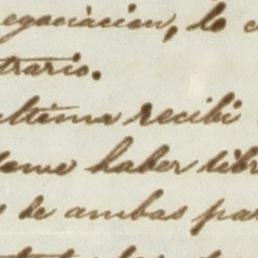 egociacion, lo c
trario.
ultima recibi
dome haber libr
s de ambas par